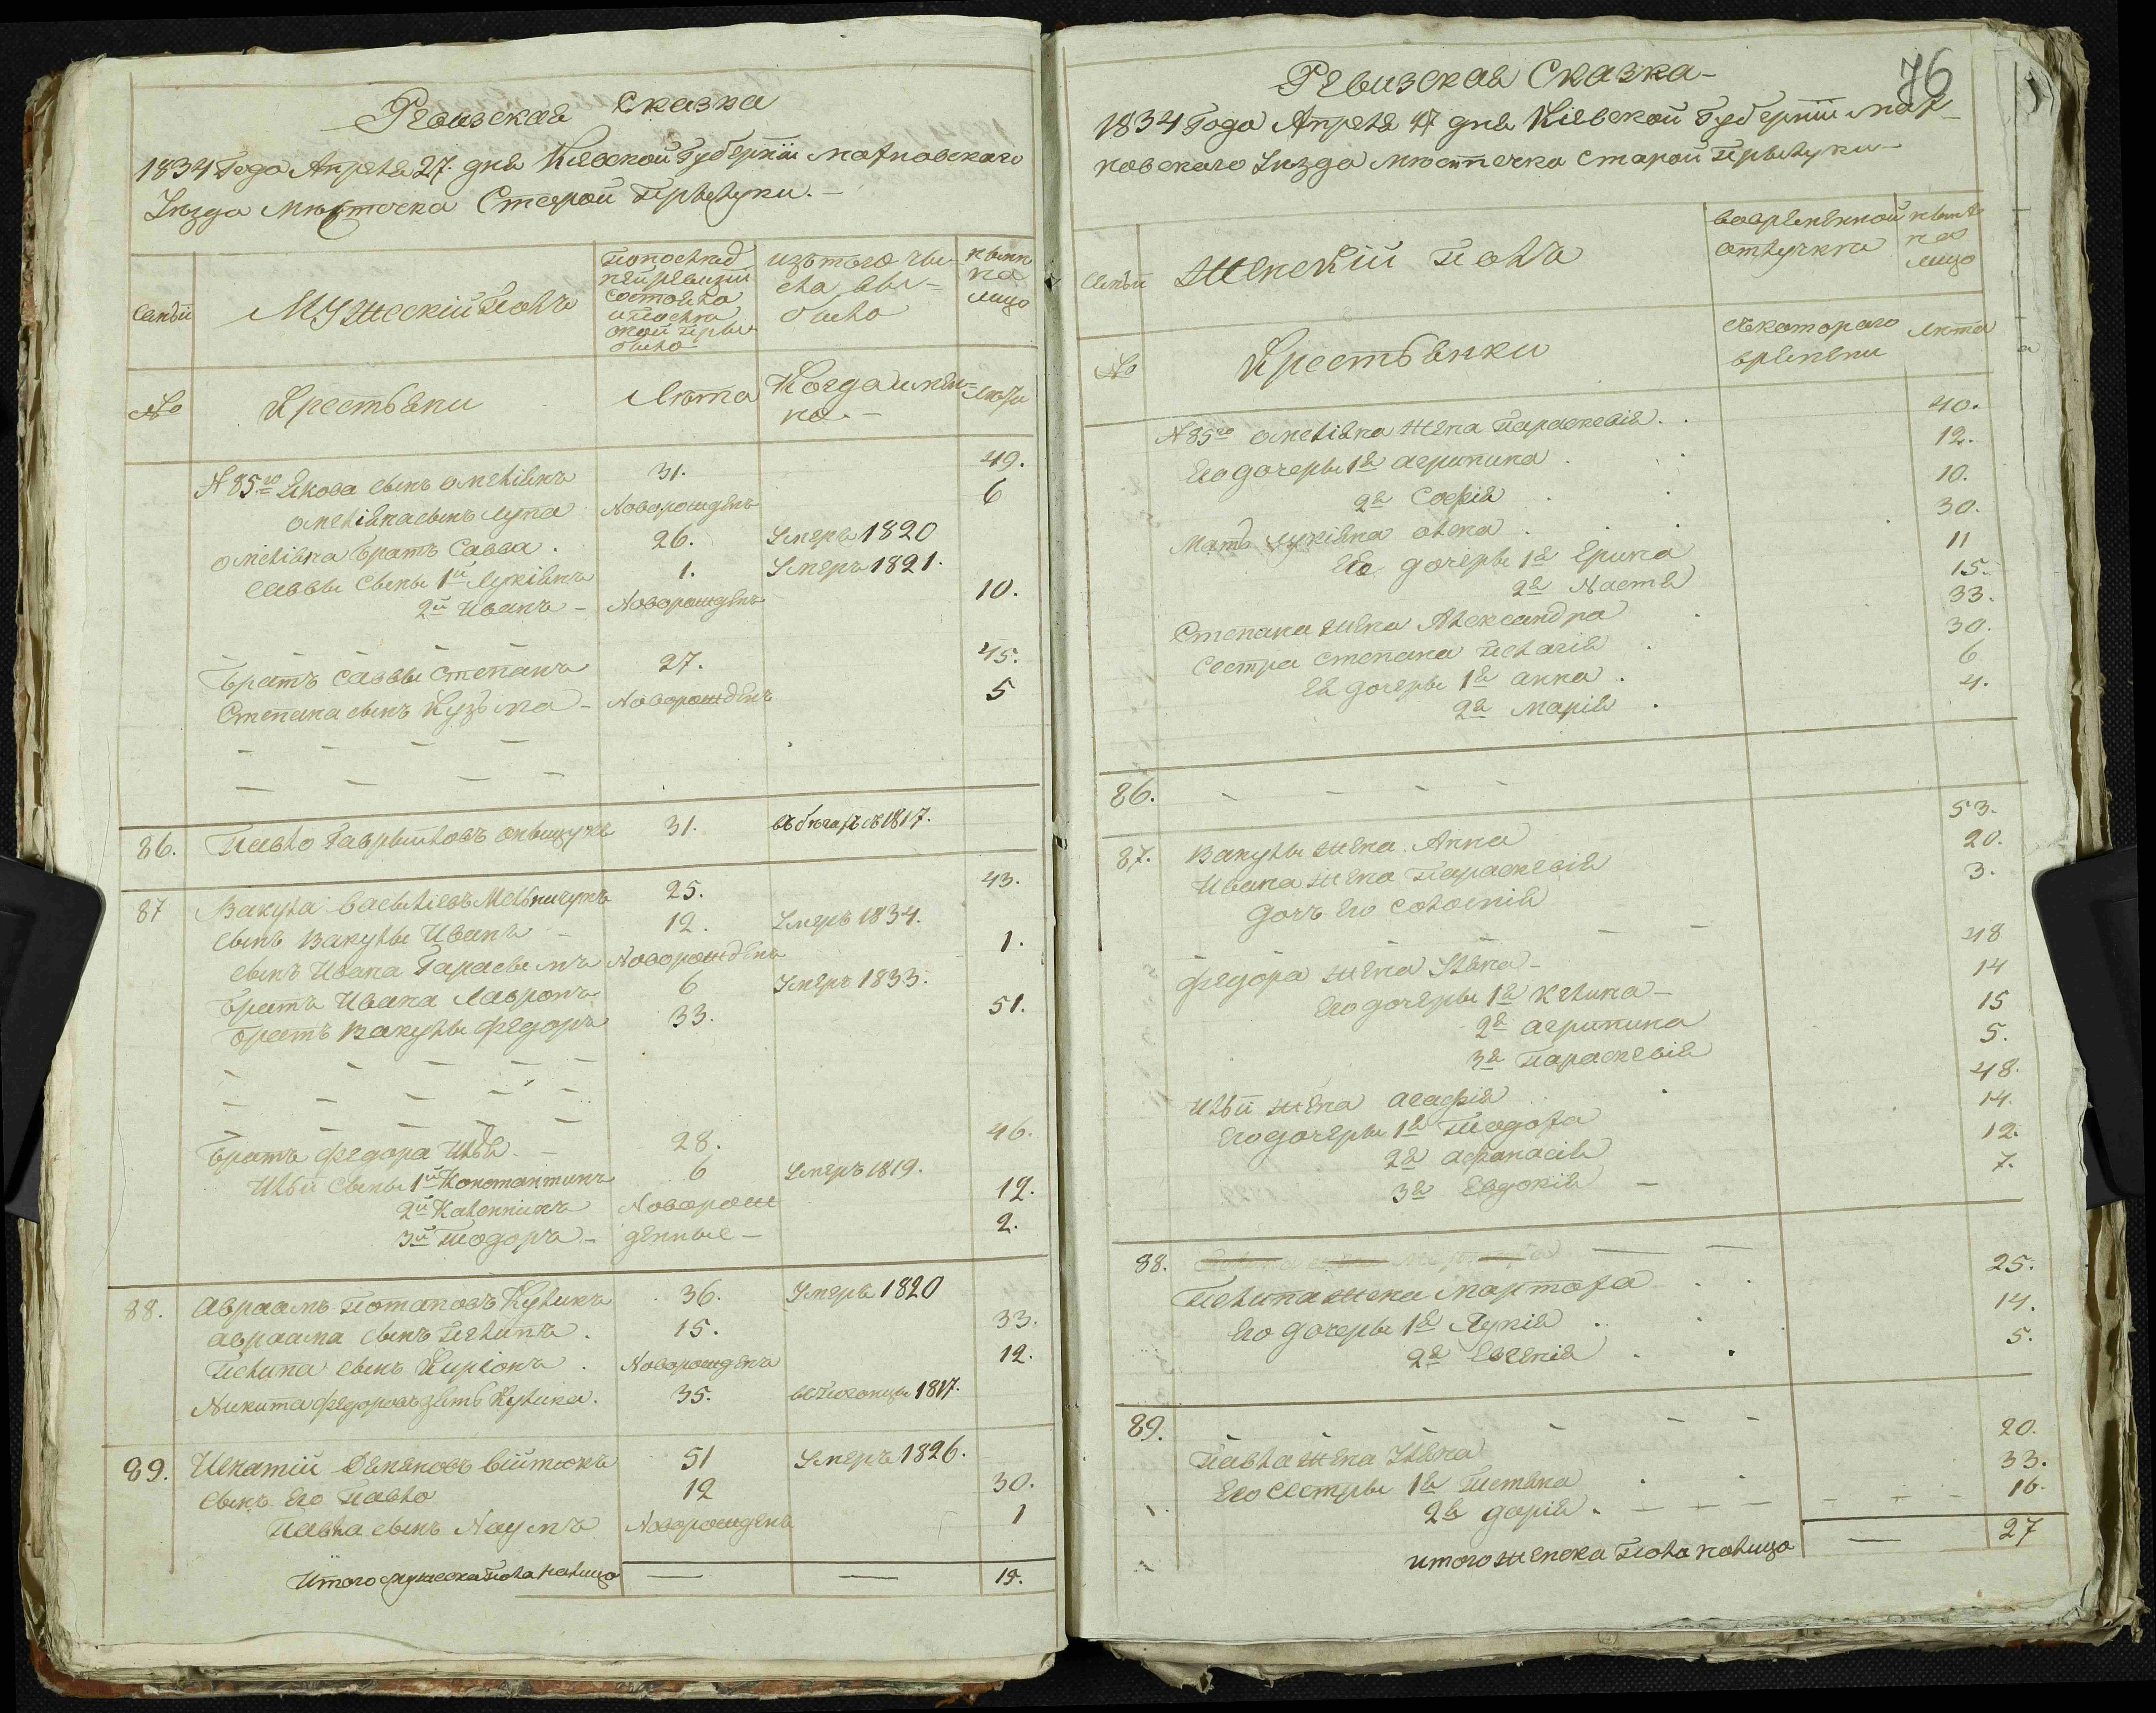 Ревизская Сказка
1834 Года Апреля 27. дня Киевской Губернiи Махновского
Уезда Местечка Старой Прылуки.
семьи
Мужескiй Полъ
по последней ревизiи состояло и после оной прыбыло
изъ того числа выбыло
ныне на лицо
№
Крестьяни
Лета
Когда именно
Лета
№ 85го Якова сынъ Омелiянъ 31. 49.
Омелiяна сынъ Лука Новорожденъ 6
Омелiяна братъ Савва. 26. Умеръ 1820
Саввы сыны 1й Лукiянъ 1. Умеръ 1821.
2й Иванъ - Новорожденъ 10.
братъ Саввы Степанъ 27. 45.
Степана сынъ Кузьма - Новорожденъ 5
86. Павло Гаврыловъ 31. въ бегахъ съ 1817.
87 Вакула Васылiевъ Мельничукъ 25. 43.
сынъ Вакулы Иванъ - 12. Умеръ 1834.
сынъ Ивана Гарасымъ Новорожденъ 1.
братъ Ивана Лавронъ 6 Умеръ 1833.
братъ Вакулы Федоръ 33. 51.
братъ Федора Илья - 28. 46.
Ильи сыны 1й Константинъ 6 Умеръ 1819.
2й Каленникъ Новорож 12.
3й Тодоръ - денные - 2.
88. Авраамъ Потаповъ Куликъ 36. Умеръ 1820
Авраама сынъ Пилипъ. 15. 33.
Пилипа сынъ Кирiонъ. Новорожденъ 12.
Никита Федоровъ зять Кулика. 35. 1817.
89. Игнатiй Демяновъ Вiйтюкъ 51 Умеръ 1826.
сынъ Его Павло 12 30.
Павла сынъ Наумъ Новорожденъ 1
Итого мужеска пола налицо — — 19.
76
Ревизская Сказка -
1834 Года Апреля 27 дня Киевской Губернiи Мах-
новского Уезда Местечка Старой Прылуки -
семьи
Женскiй Полъ
во временной отлучкы
ныне на лицо
№
Крестьянки
съ котораго времени
лета
№ 85го Омелiяна жена Параскевiя. 40.
Его дочеры 1я Агрипина. 12.
2я Софiя. 10.
Мать Лукiяна Олена. 30.
Его дочеры 1я Ерина 11
2я Настя 15.
Степана жена Александра 33.
Сестра Степана Пелагiя. 30.
Ея дочеры 1я Анна. 6
2я Марiя. 4.
86. - - - -
87. Вакулы жена Анна 53.
Ивана жена Параскевiя 20.
дочъ Его Соломiя 3.
Федора жена Уляна - 48
Его дочеры 1я Келина - 14
2я Агрипина 15
3я Параскевiя 5.
Ильи жена Агафiя 48.
Его дочеры 1я Теодора 14.
2я Афанасiя 12.
3я Евдокiя - 7.
88.
Пилипа жена Мартоха 25.
Его дочеры 1я Лукiя 14.
2я Евгенiя. 5.
89.
Павла жена Уляна 20.
Его Сестры 1я Тетяна 33.
2я Дарiя. - - - 16.
итого женска пола налицо — 27